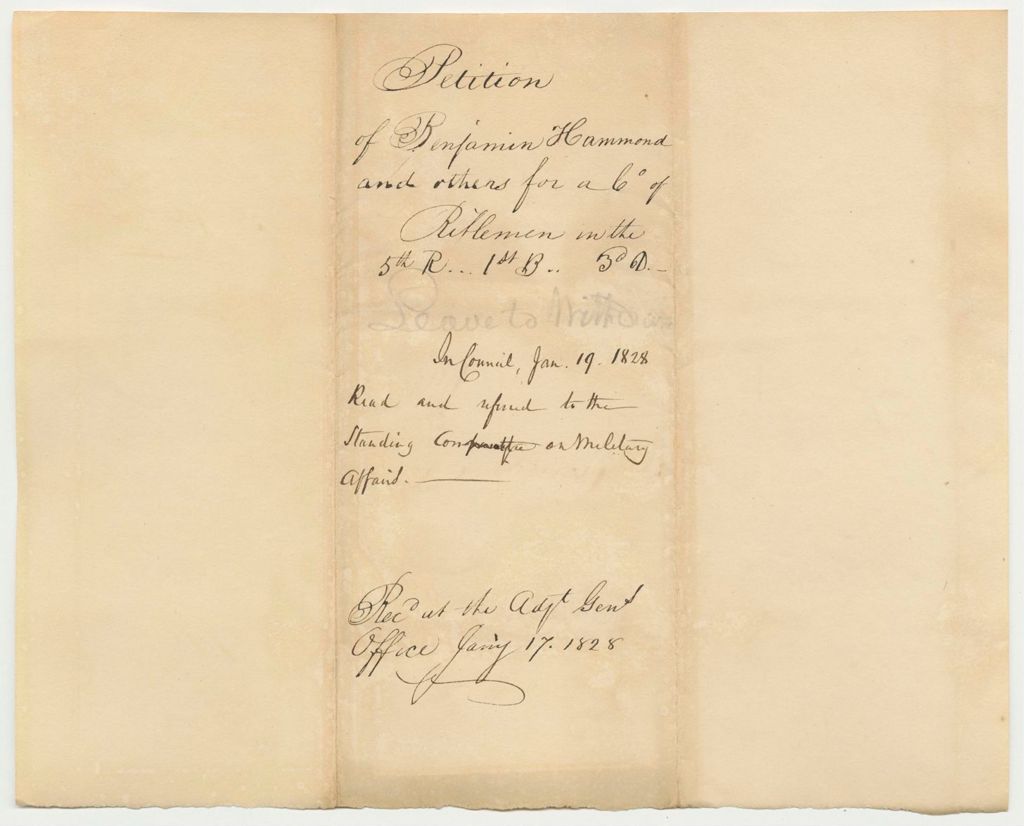 Petition
of Benjamin Hammond
and others for a Co of
Riflemen in the
5th R... 1st B.. 3d D.-
Leave to Withdraw
In Council, Jan. 19. 1828
Read and referred to the
Standing Committee on Military
Affairs.
Recd at the Adjt Genl
Office Jany 17. 1828